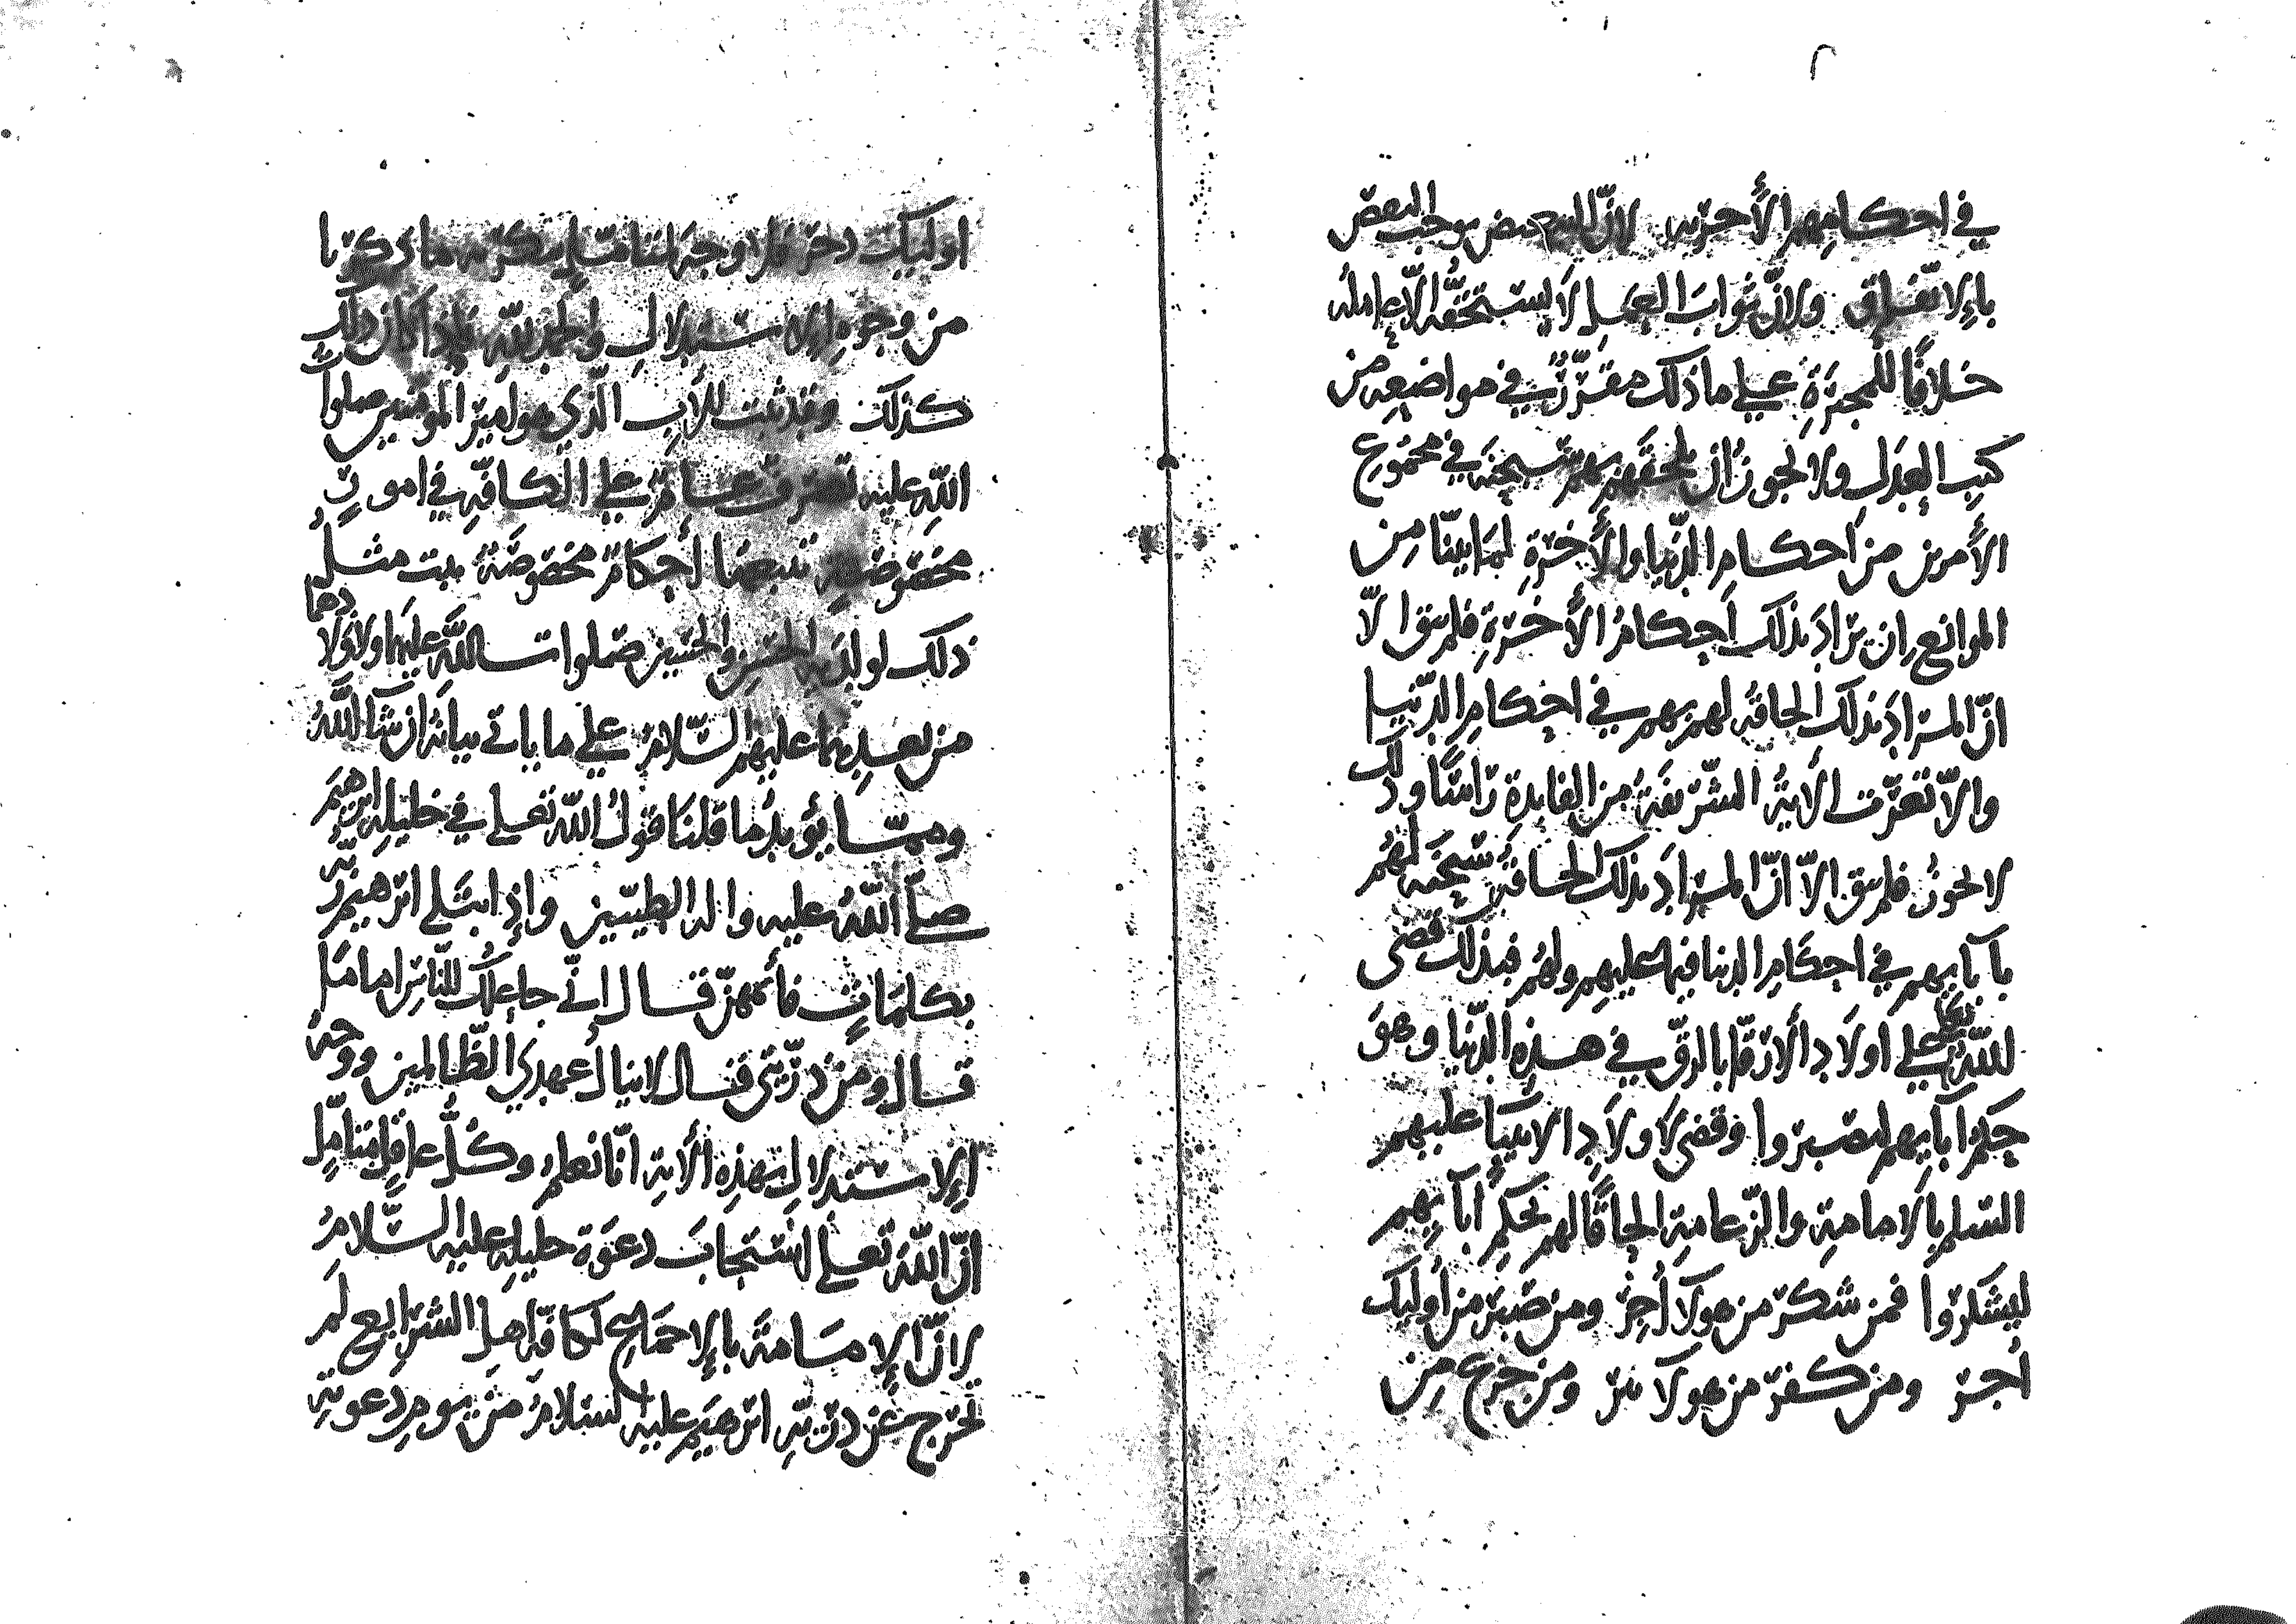 ٢
في احكامهم الأخرية لانّ البعض يوجب البعض
بالاتفاق ولانّ ثوابَ العمل لا يستحقّه الّا عامله
خلافًا للمجبرة على ما ذلك مقرّرٌ في مواضعه من
كتب العدل ولا يجوز ان يلحقهم بهم سبحنه في مجموع
الأمرين من احكام الدّنيا والأخرة لما بيّنّا من
الموانع ان يراد بذلك احكامُ الأخرة فلم يبق الّا
انّ المراد بذلك الحاقه لهم بهم في احكام الدّنيا
والّا تعرّت الاية الشّريفة من الفايدة راسًا وذلك
لا يجوز فلم يبق الّا انّ المراد بذلك الحاقه سبحنه لهم
بآبايهم في احكام الدنيا فيما عليهم ولهم فبذلك قضى
الله تعالى على اولاد الارقّا بالرقّ في هذه الدّنيا وهو
حكم آبايهم ليصبروا وقضى لاولاد الانبيا عليهم
السلم بالامامة والزّعامة الحاقًا لهم بحكم آبايهم
ليشكروا فمن شكر من هولا أُجِر ومن صبر من اوليك
اُجر ومن كفر من هولا ومن جزع من
اوليك فلا وجه لمتامّل ينكر ما ذكرنا
من وجوه الاستدلال والحمد لله فاذا كان ذلك
كذلك وقد ثبت للاب الّذي هو امير المومنين صلوات
الله عليه تصرف عامّ على الكافّة في امور
مخصوصة احكام مخصوصة ثبت مثل
ذلك لولديه الحسن والحسين صلوات الله عليهما ولاولادهما
من بعدهما عليهم السّلام على ما ياتي بيانه ان شآ اللهُ
وممّا يؤيد ما قلنا قول الله تعالى في خليله ابرهيم
صلّى اللهُ عليه واله الطيّبين وإذ ابتلى ابرهيم ربّه
بكلماتٍ فأتمّهنّ قال انّي جاعلك للنّاس اماما
قال ومن ذرّيّتي قال لا ينال عهدي الظّالمين ووجهُ
الاستدلال بهذه الأية انّا نعلم وكلُّ عاقل متأمّل
انّ الله تعالى استجاب دعوة خليله عليه السّلامُ
لانّ الإمامة بالإجماع لكافّة اهل الشرايع لم
تخرج عن ذرّيّة ابرهيم عليه السلامُ من يوم دعوته